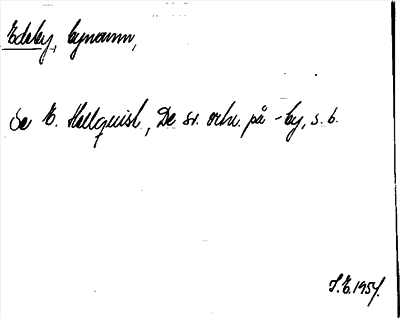 Edeby, bynamn,
se E. Hellquist, De sv. ortn. på -by, s. 6.
S.E. 1954.